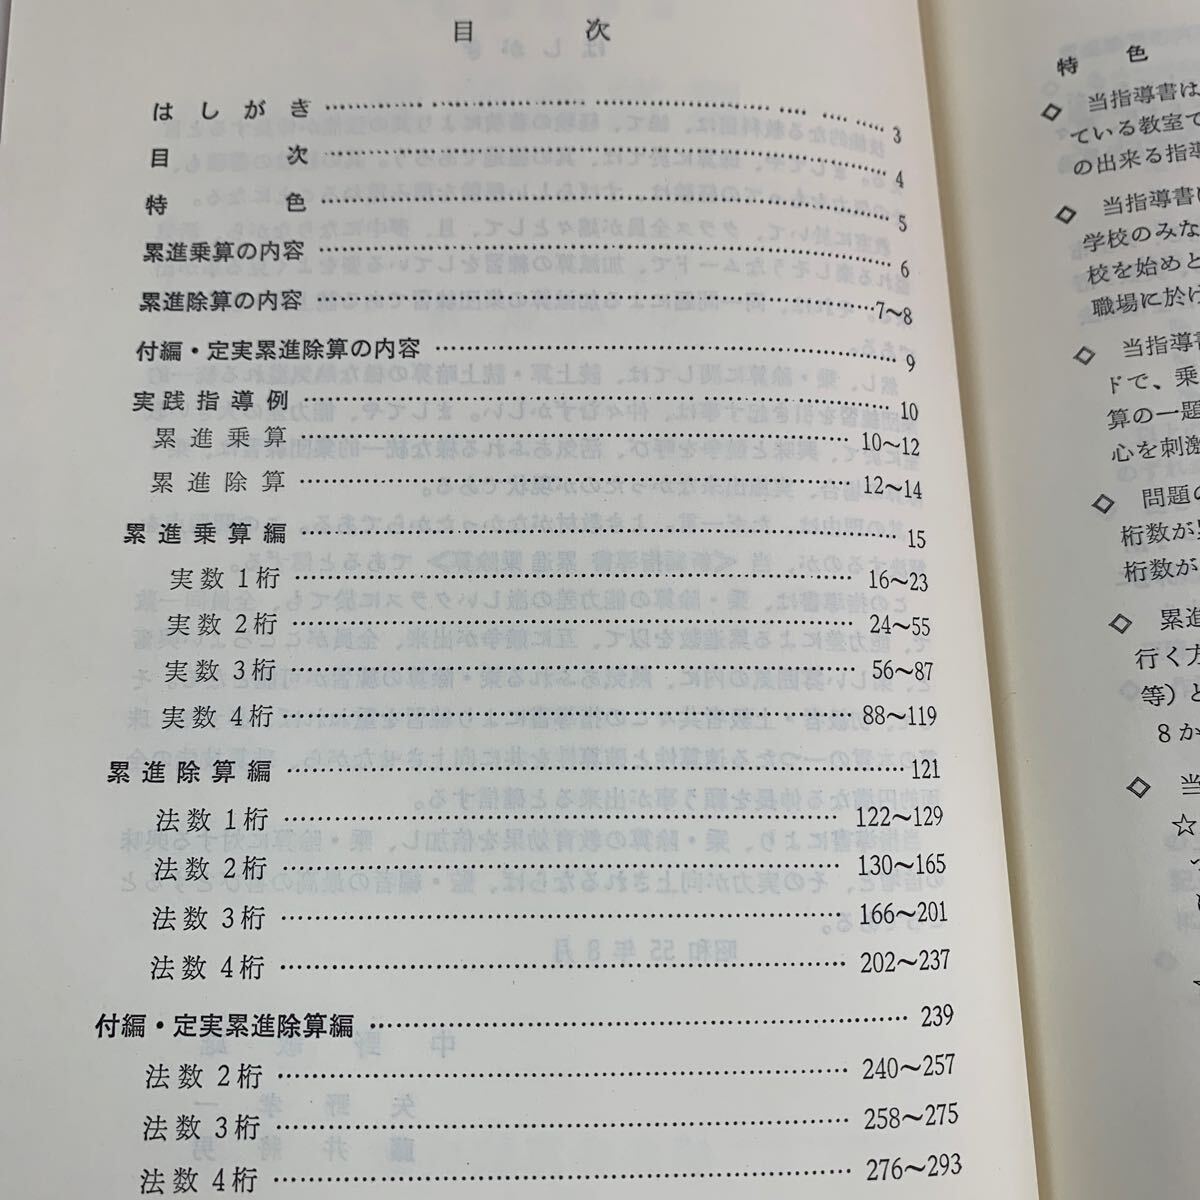 目次
はしがき 3
目次 4
特色 5
累進乗算の内容 6
累進除算の内容 7〜8
付編・定実累進除算の内容 9
実践指導例 10
累進乗算 10〜12
累進除算 12〜14
累進乗算編 15
実数1桁 16〜23
実数2桁 24〜55
実数3桁 56〜87
実数4桁 88〜119
累進除算編 121
法数1桁 122〜129
法数2桁 130〜165
法数3桁 166〜201
法数4桁 202〜237
付編・定実累進除算編 239
法数2桁 240〜257
法数3桁 258〜275
法数4桁 276〜293
特色
◇ 当指導書は
ている教室で
の出来る指導
◇ 当指導書に
学校のみな
校を始めと
職場に於け
◇ 当指導書
ドで、乗
算の一題
心を刺激
◇ 問題の
桁数が
桁数が
◇ 累進
行く方
等）と
8か
◇ 当
☆